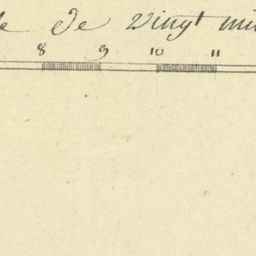 de vingt
8 9 10 11